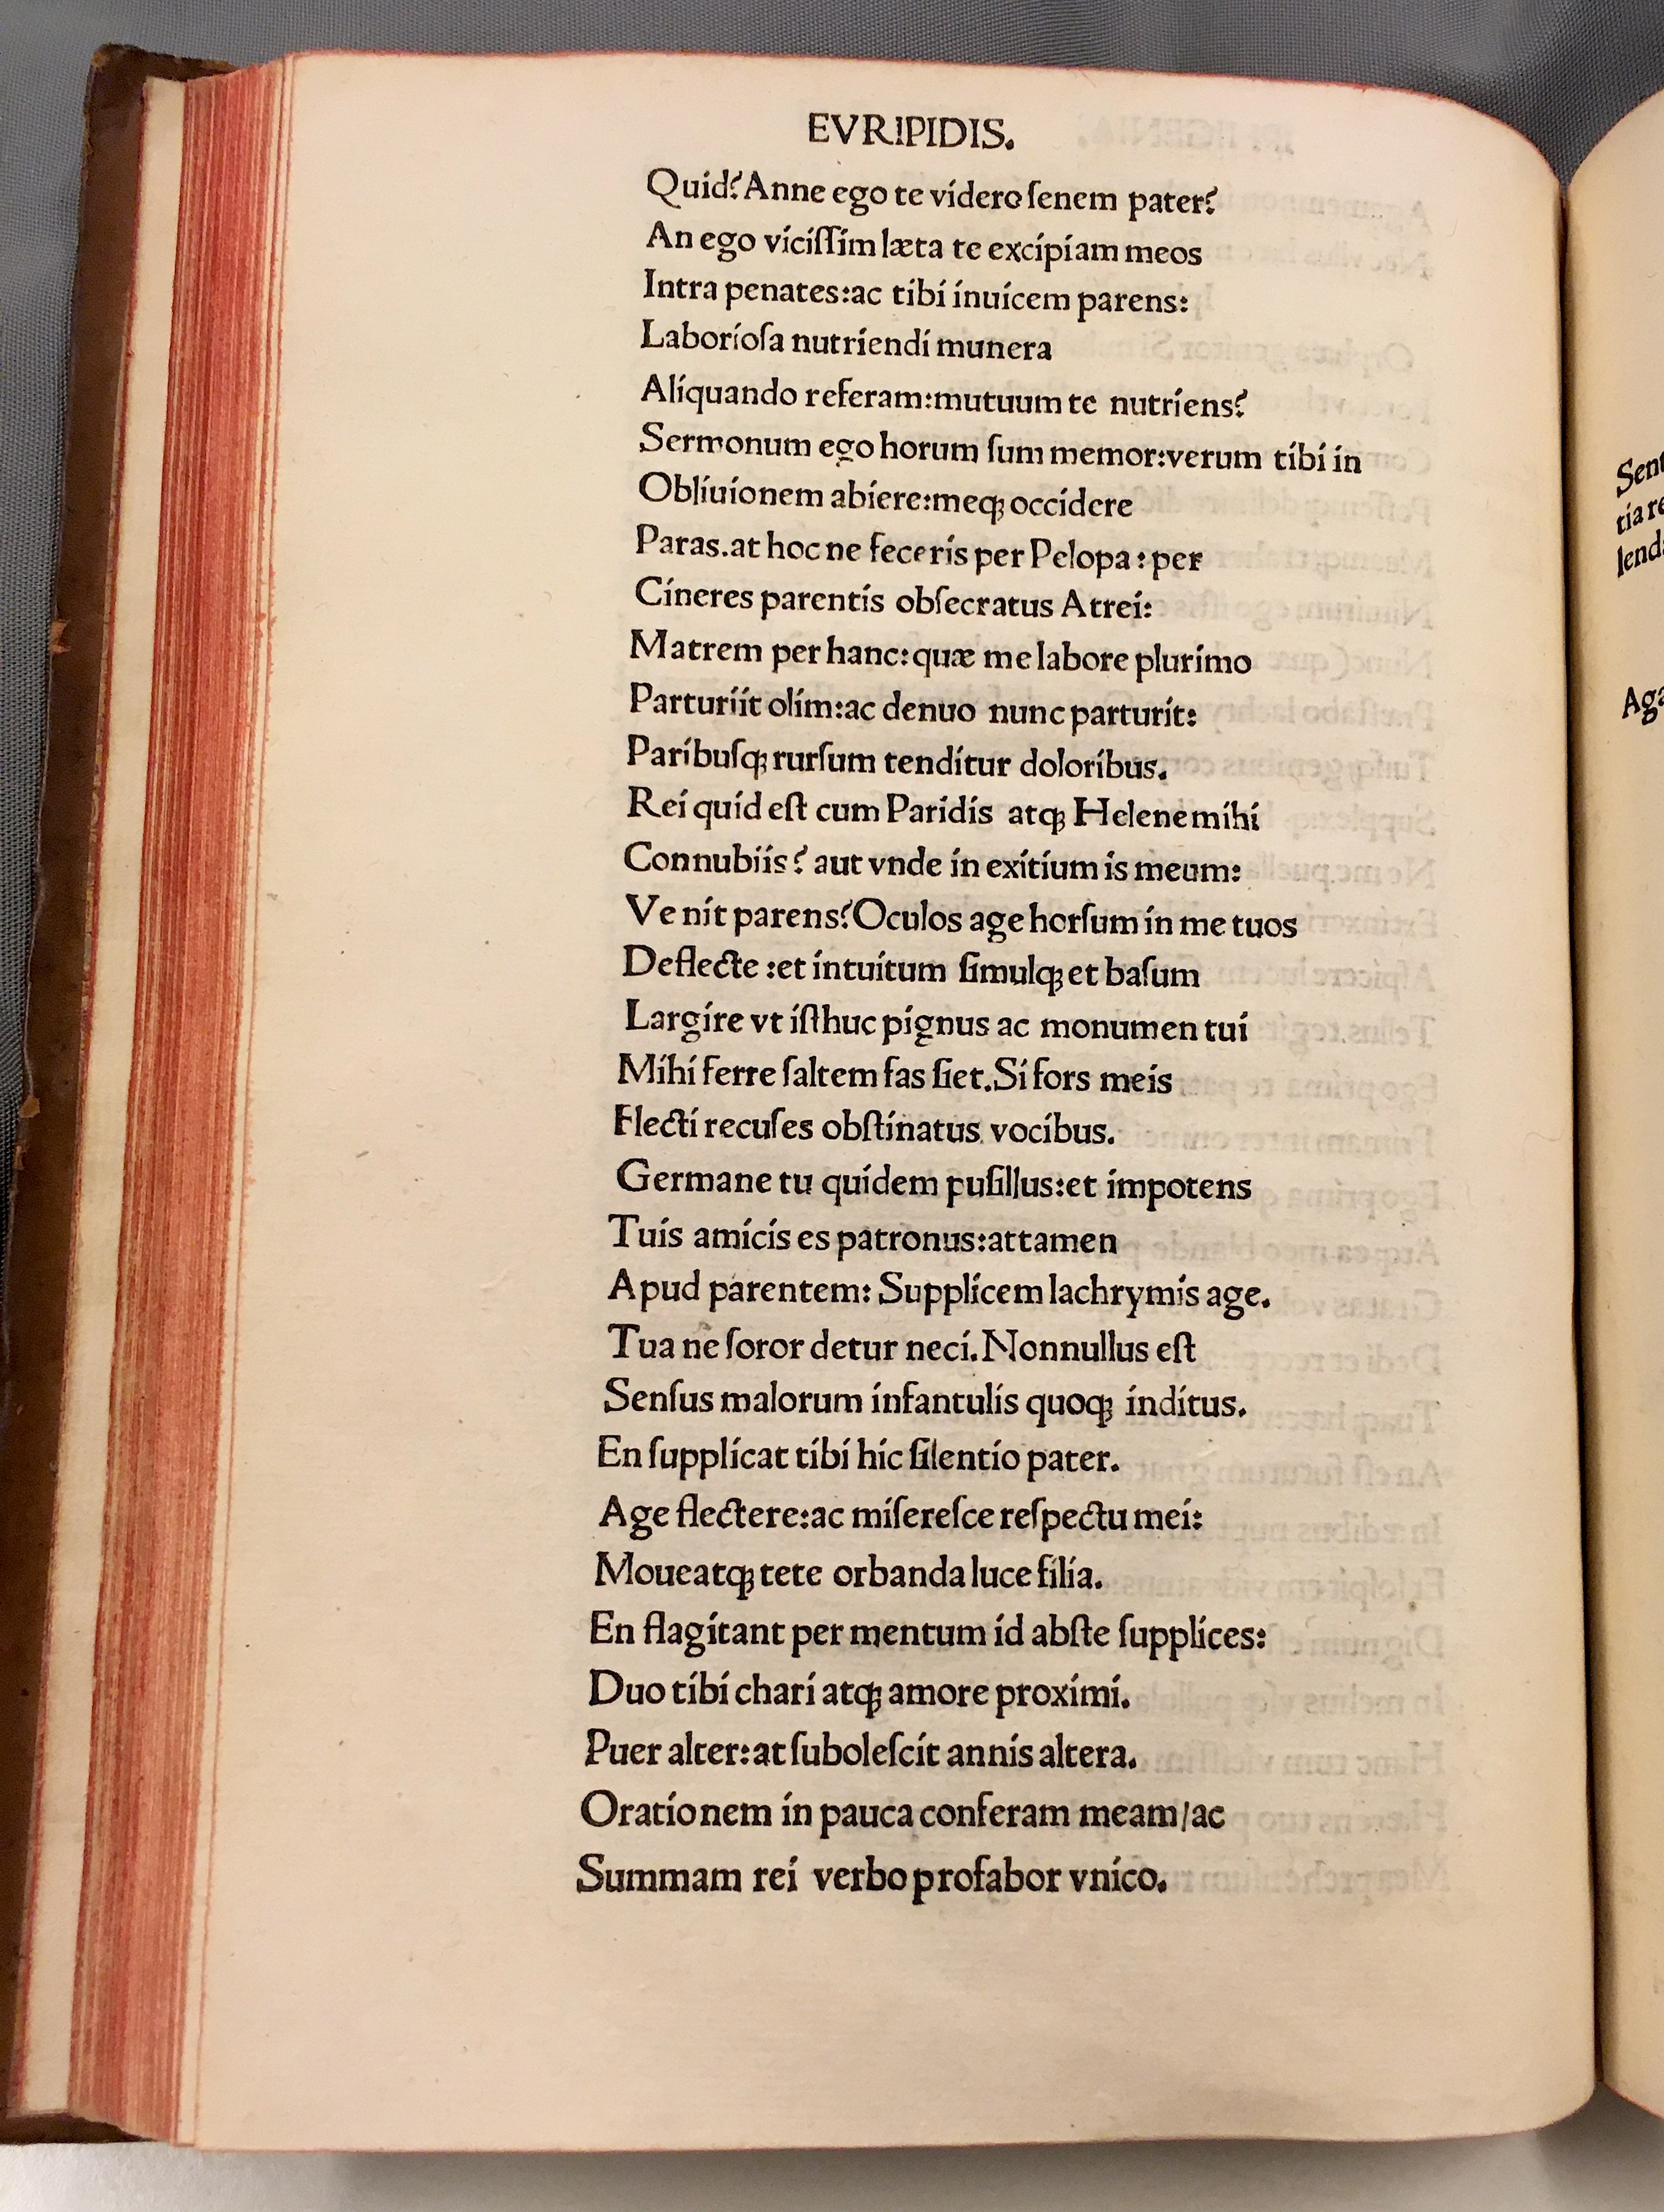 EVRIPIDIS.
Quid? Anne ego te videro ſenem pater?
An ego viciſſim læta te excipiam meos
Intra penates: ac tibi inuicem parens:
Laborioſa nutriendi munera
Aliquando referam: mutuum te nutriens?
Sermonum ego horum ſum memor: verum tibi in
Obliuionem abiere: meqꝫ occidere
Paras. at hoc ne feceris per Pelopa: per
Cineres parentis obſecratus Atrei:
Matrem per hanc: quæ me labore plurimo
Parturiit olim: ac denuo nunc parturit:
Paribuſqꝫ rurſum tenditur doloribus.
Rei quid eſt cum Paridis atqꝫ Helene mihi
Connubiis? aut vnde in exitium is meum:
Venit parens? Oculos age horſum in me tuos
Deflecte: et intuitum ſimulqꝫ et baſum
Largire vt iſthuc pignus ac monumen tui
Mihi ferre ſaltem fas ſiet. Si fors meis
Flecti recuſes obſtinatus vocibus.
Germane tu quidem puſillus: et impotens
Tuis amicis es patronus: attamen
Apud parentem: Supplicem lachrymis age.
Tua ne ſoror detur neci. Nonnullus eſt
Senſus malorum infantulis quoqꝫ inditus.
En ſupplicat tibi hic ſilentio pater.
Age flectere: ac miſereſce reſpectu mei:
Moueatqꝫ tete orbanda luce filia.
En flagitant per mentum id abſte ſupplices:
Duo tibi chari atqꝫ amore proximi.
Puer alter: at ſuboleſcit annis altera.
Orationem in pauca conferam meam/ac
Summam rei verbo profabor vnico.
Sent
tia re
lend
Aga